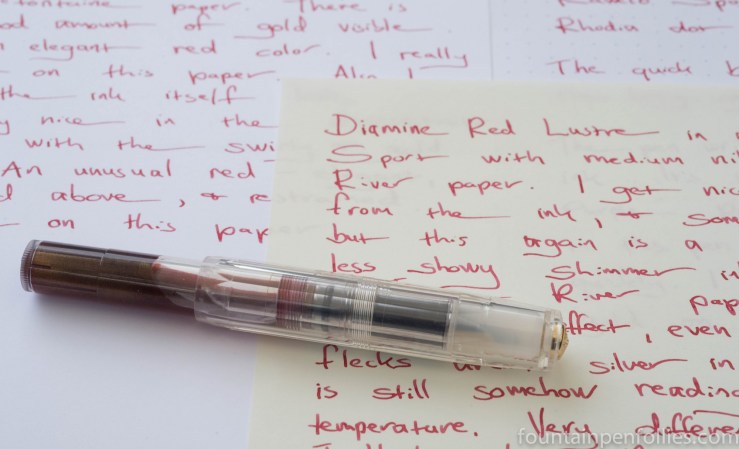 paper. There is
amount of gold visible
elegant red color. I really
on this paper. Also I
the ink itself
nice in the
with the swi
An unusual red
above, & re
on this pap
Rhodia dot
The quick b
Diamine Red Lustre in
Sport with medium ni
River paper. I get nic
from the ink, & som
but this argain is a
less showy shimmer in
River pap
ffect, even
flecks silver in
is still somehow reading
temperature. Very differe
fountainpenfollies.com